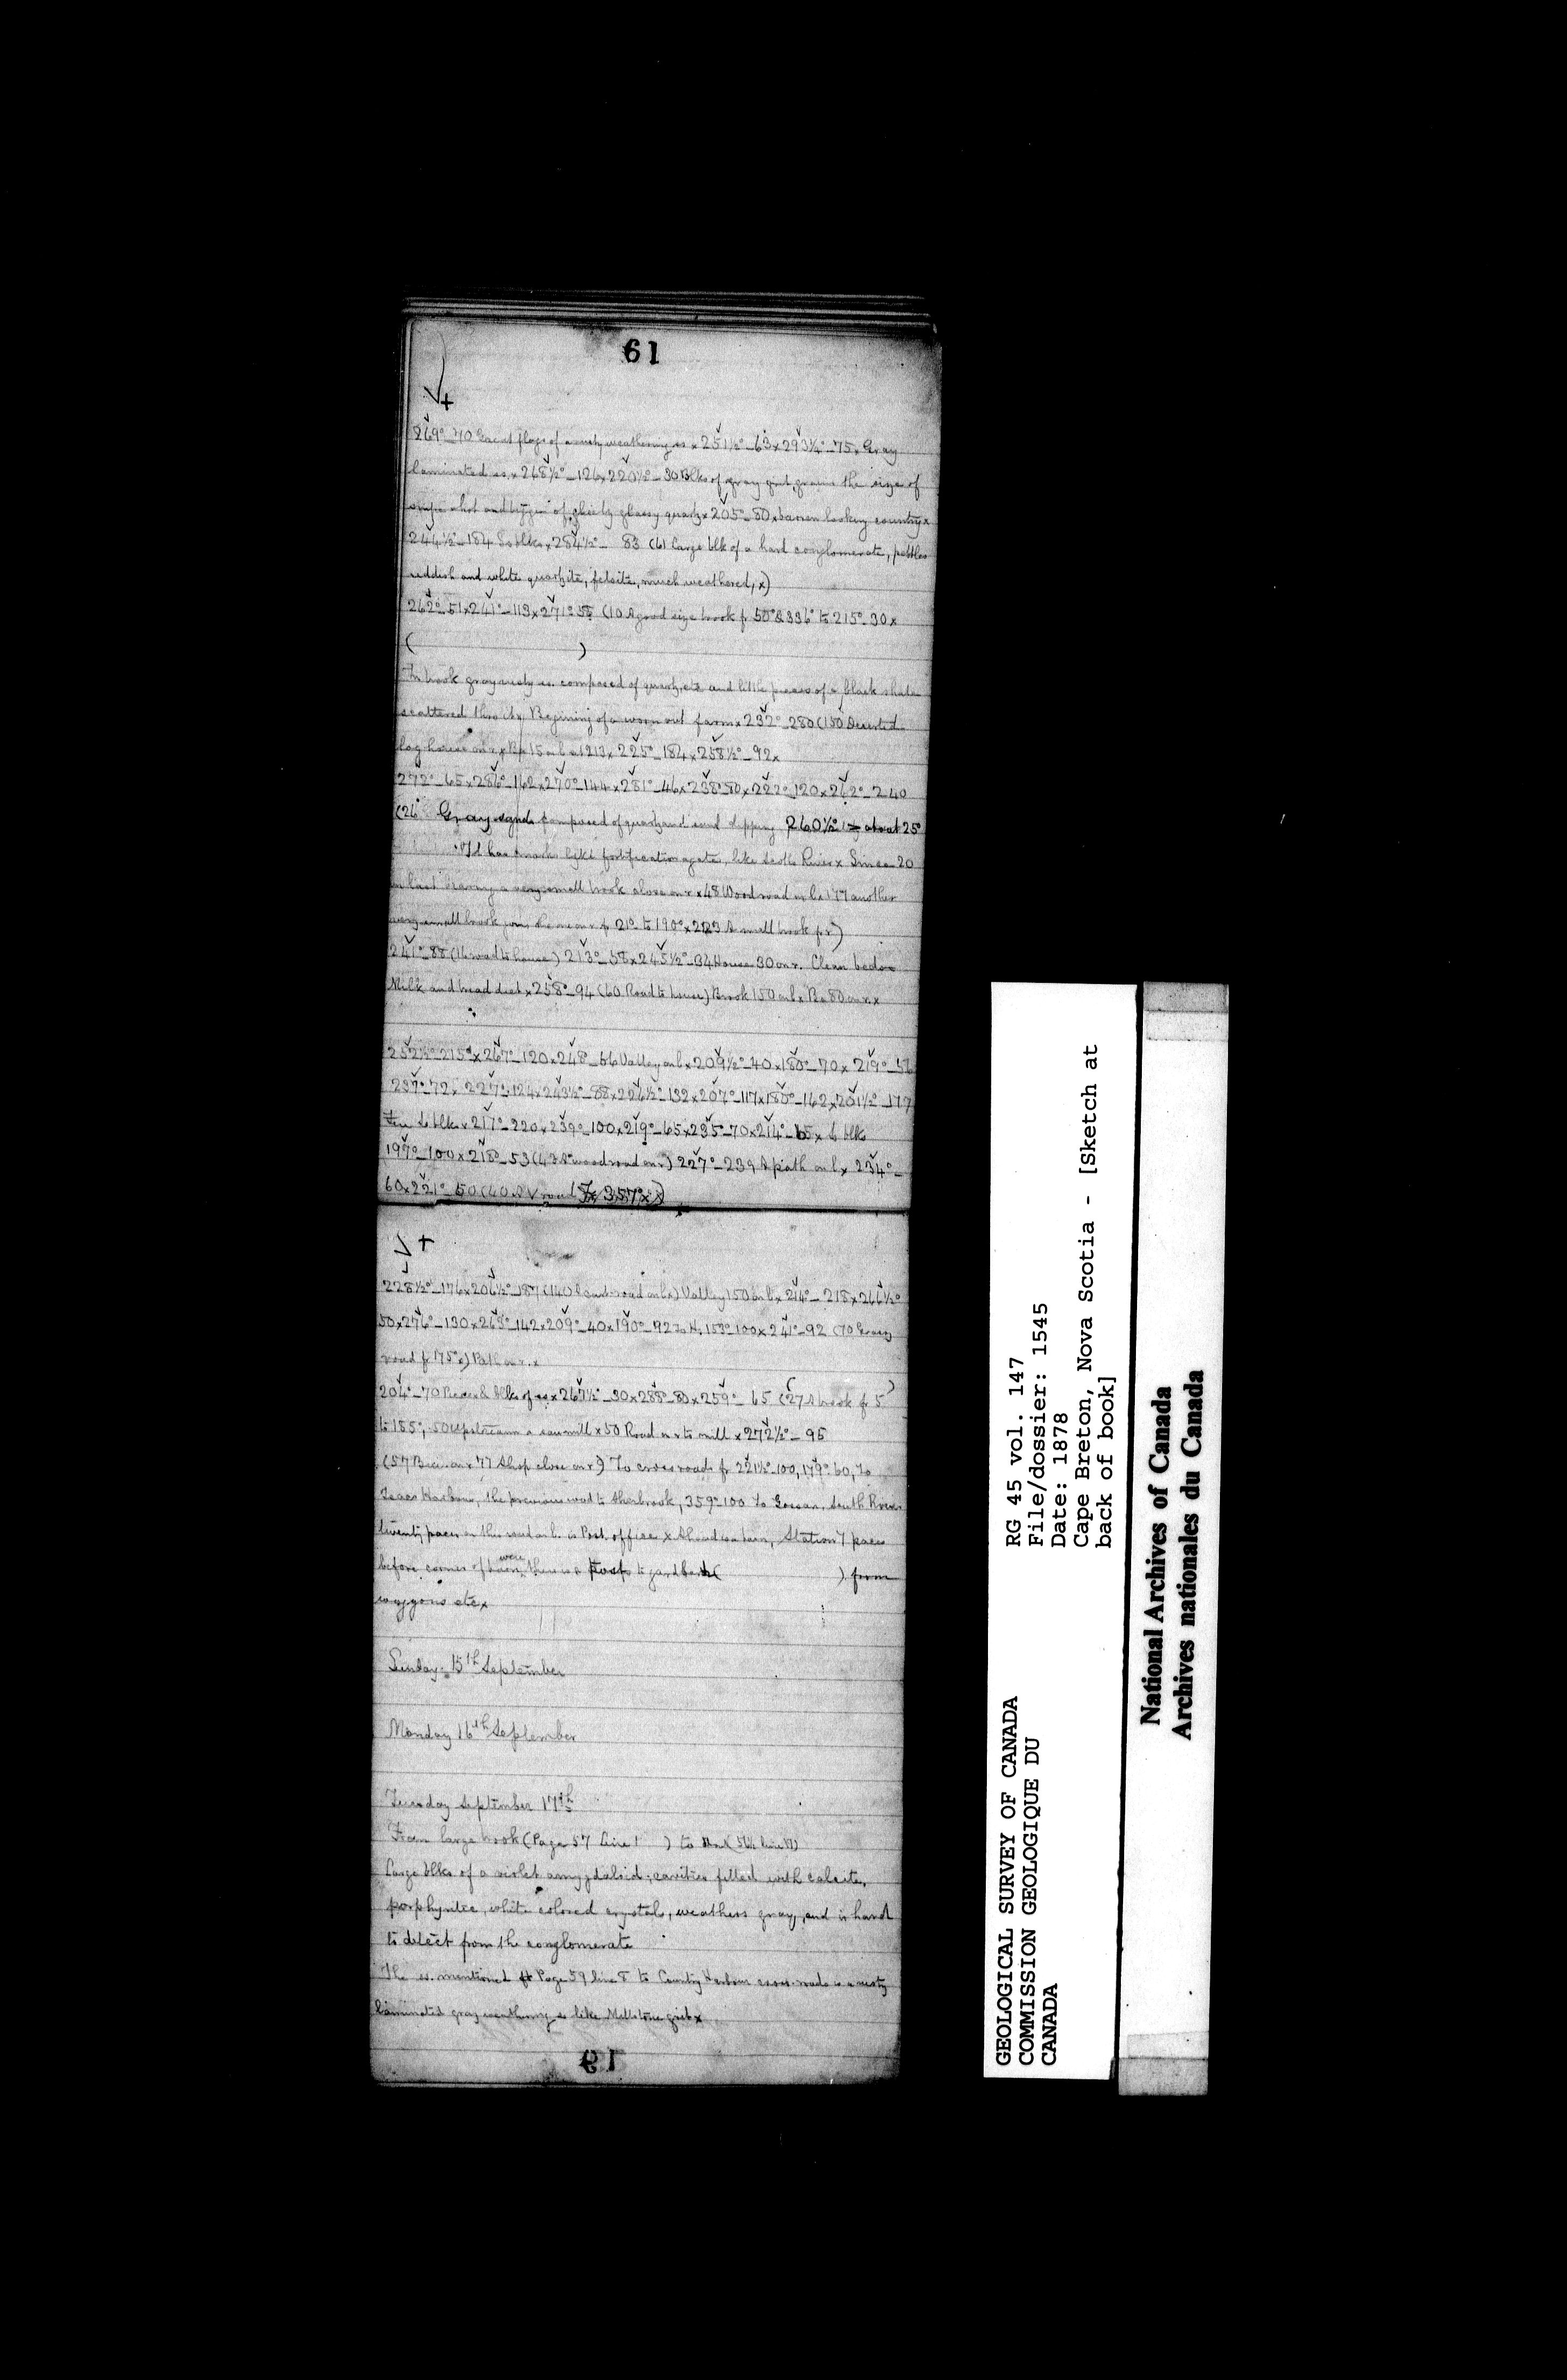 61
269° 70 Great flags of a rusty weathering ss x 251½° 63 x 293¼° 75 x Gray
laminated ss x 268½° 126 x 220½° 30 Blks of gray grit, grains the size of
shot and bigger of glassy quartz x 205° 80 x barren looking country x
244½° 184 Ss blks x 284½° 83 (61 Large blk of a hard conglomerate, pebbles
reddish and white quartzite, felsite, much weathered, x)
262° 51 x 241° 113 x 271° 58 (10 A good size brook fr 50° & 336° to 215° 30 x
( )
In brook gray rusty ss. composed of quartz, etc and little pieces of a black shale
scattered thro it x Begining of a worn out farm x 232° 280 (150 Deserted
log house on r x 225° 184 x 258½° 92 x
272° 65 x 286° 162 x 270° 144 x 281° 46 x 238° 50 x 222° 120 x 262° 240
(26 Gray composed of quartz and dipping 260½° about 25°
has marks like fortification agate, like Scotts River x Since 20
on last bearing a very small brook close on r x 48 Wood road on l x 177 another
very small brook joins the one on r fr 21° to 190° x 223 A small brook fr)
241° 88 (16 road to house) 213° 58 x 245½° 34 House 30 on r. Clean beds
Milk and bread diet x 258° 94 (60 Road to house) Brook 150 on l x Ba 80 on r. x
252½° 215 x 267° 120 x 248° 66 Valley on l x 209½° 40 x 180° 70 x 219° 56
237° 72 x 227° 124 x 243½° 88 x 226½° 132 x 207° 117 x 180° 162 x 201½° 177
Few Ss blks x 217° 220 x 239° 100 x 219° 65 x 235° 70 x 214° 65 x blks
197° 100 x 218° 53 (43 A wood road on r) 227° 239 A path on l x 234°
60 x 221° 50 (40 A V road Fr 357° x)
228½° 176 x 206½° 187 (140 road on l x) Valley 150 on l x 214° 218 x 266½°
50 x 276° 130 x 268° 142 x 209° 40 x 190° 92 to H. 153° 100 x 241° 92 (70
road fr 175° x) Path on r. x
204° 70 Pieces & blks of ss x 267½° 30 x 288° 80 x 259° 65 (27 A brook fr 5°
to 185°, 50 Upstream a saw mill x 50 Road on r to mill x 272½° 95
(57 on r 77 Shop close on r) To cross roads fr 221½° 100, 179° 60, to
Isaac Harbour, the previous road to Sherbrook, 359° 100 to South River
twenty paces on this road on l. is Post office x Ahead is a barn, Station 7 paces
before corner of barn where there is a post to guard barn ( ) from
waggons etc x
Sunday 15th September
Monday 16th September
Tuesday September 17th
From large brook (Page 57 Line 1 ) to
Large blks of a violet amygdaloid; cavities filled with calcite,
porphyritic, white colored crystals, weathers gray, and is hard
to detect from the conglomerate
The ss. mentioned Page 59 line 8 to Country Harbour cross-roads is a rusty
laminated gray weathering ss like Millstone grit x
61
GEOLOGICAL SURVEY OF CANADA
COMMISSION GEOLOGIQUE DU
CANADA
RG 45 vol. 147
File/dossier: 1545
Date: 1878
Cape Breton, Nova Scotia - [Sketch at
back of book]
National Archives of Canada
Archives nationales du Canada